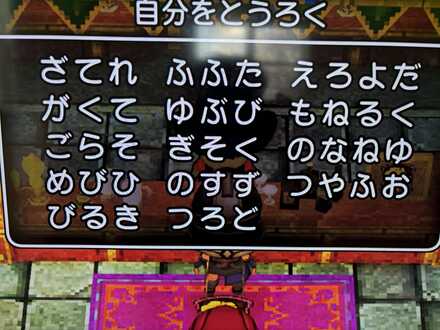 自分をとうろく
ざてれ ふふた えろよだ
がくて ゆぶび もねるく
ごらそ ぎそく のなねゆ
めびひ のすず つやふお
びるき つろど